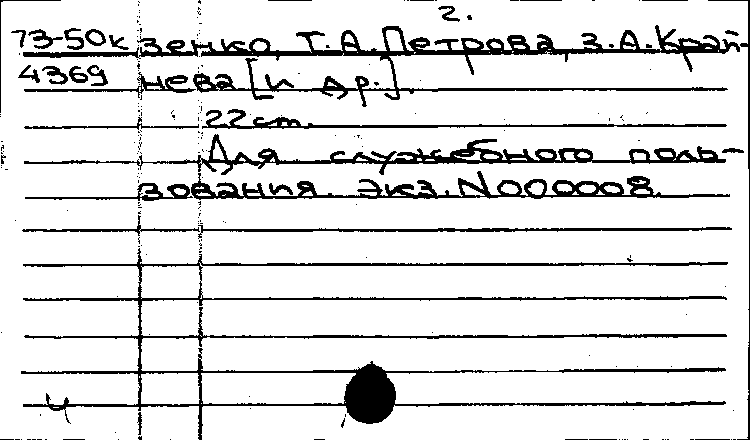 2.
73-50к зенко, Т.А. Петрова, З.А. Край-
4369 нева [и др.].
22 cm.
Для служебного поль-
зования. Экз. N000008.
ч